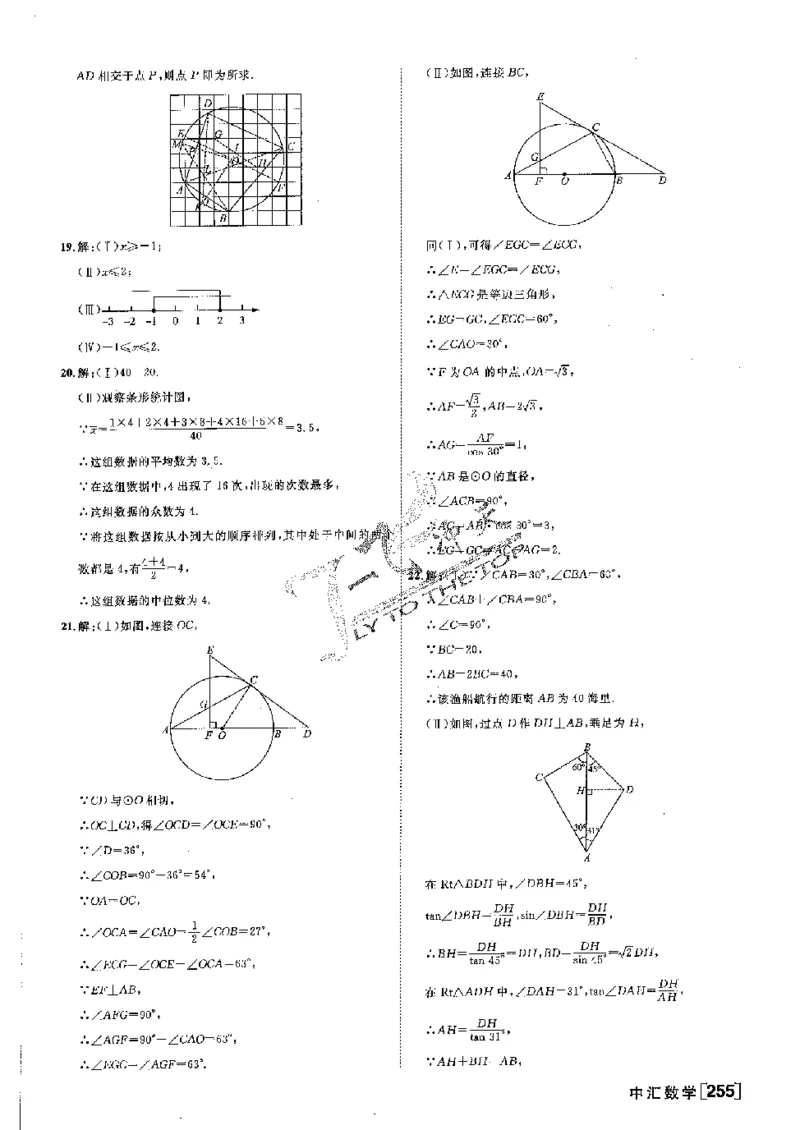 AD 相交于点 P,则点 P 即为所求.
D
E
G
M
P
I
C
O
H
L
A
F
K
B
19.解:(Ⅰ)x≥-1;
(Ⅱ)x≤2;
(Ⅲ)
-3 -2 -1 0 1 2 3
(Ⅳ)-1≤x≤2.
20.解:(Ⅰ)40 20.
(Ⅱ)观察条形统计图,
∵x̄=(1×4+2×4+3×8+4×16+5×8)/40=3.5,
∴这组数据的平均数为 3.5.
∵在这组数据中,4 出现了 16 次,出现的次数最多,
∴这组数据的众数为 4.
∵将这组数据按从小到大的顺序排列,其中处于中间的两个
数都是 4,有(4+4)/2=4,
∴这组数据的中位数为 4.
21.解:(Ⅰ)如图,连接 OC,
E
C
G
A F O B D
∵CD 与⊙O 相切,
∴OC⊥CD,得∠OCD=∠OCE=90°,
∵∠D=36°,
∴∠COB=90°-36°=54°,
∵OA=OC,
∴∠OCA=∠CAO=1/2∠COB=27°,
∴∠ECG=∠OCE-∠OCA=63°,
∵EF⊥AB,
∴∠AFG=90°,
∴∠AGF=90°-∠CAO=63°,
∴∠EGC=∠AGF=63°.
(Ⅱ)如图,连接 BC,
E
C
G
A F O B D
同(Ⅰ),可得∠EGC=∠ECG,
∴∠E=∠EGC=∠ECG,
∴△ECG 是等边三角形,
∴EG=GC,∠EGC=60°,
∴∠CAO=30°,
∵F 为 OA 的中点,OA=√3,
∴AF=√3/2,AB=2√3,
∴AG=AF/cos 30°=1,
∵AB 是⊙O 的直径,
∴∠ACB=90°,
∴AC=AB·cos 30°=3,
∴EG=GC=AC-AG=2.
22.解:(Ⅰ)∵∠CAB=30°,∠CBA=60°,
∴∠CAB+∠CBA=90°,
∴∠C=90°,
∵BC=20,
∴AB=2BC=40,
∴该渔船航行的距离 AB 为 40 海里.
(Ⅱ)如图,过点 D 作 DH⊥AB,垂足为 H,
B
60° 45°
C
H D
30° 31°
A
在 Rt△BDH 中,∠DBH=45°,
tan∠DBH=DH/BH,sin∠DBH=DH/BD,
∴BH=DH/tan 45°=DH,BD=DH/sin 45°=√2DH,
在 Rt△ADH 中,∠DAH=31°,tan∠DAH=DH/AH,
∴AH=DH/tan 31°,
∵AH+BH=AB,
LY TO THE TOP
中汇数学[255]